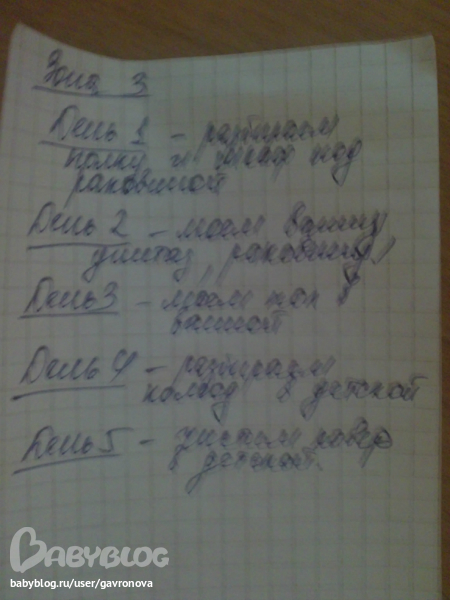 Зона 3
День 1 – разбираем
полку и шкаф под
раковиной
День 2 – моем ванну,
унитаз, раковину
День 3 – моем пол в
ванной
День 4 – разбираем
комод в детской
День 5 – чистим ковер
в детской.
BABYBLOG
babyblog.ru/user/gavronova